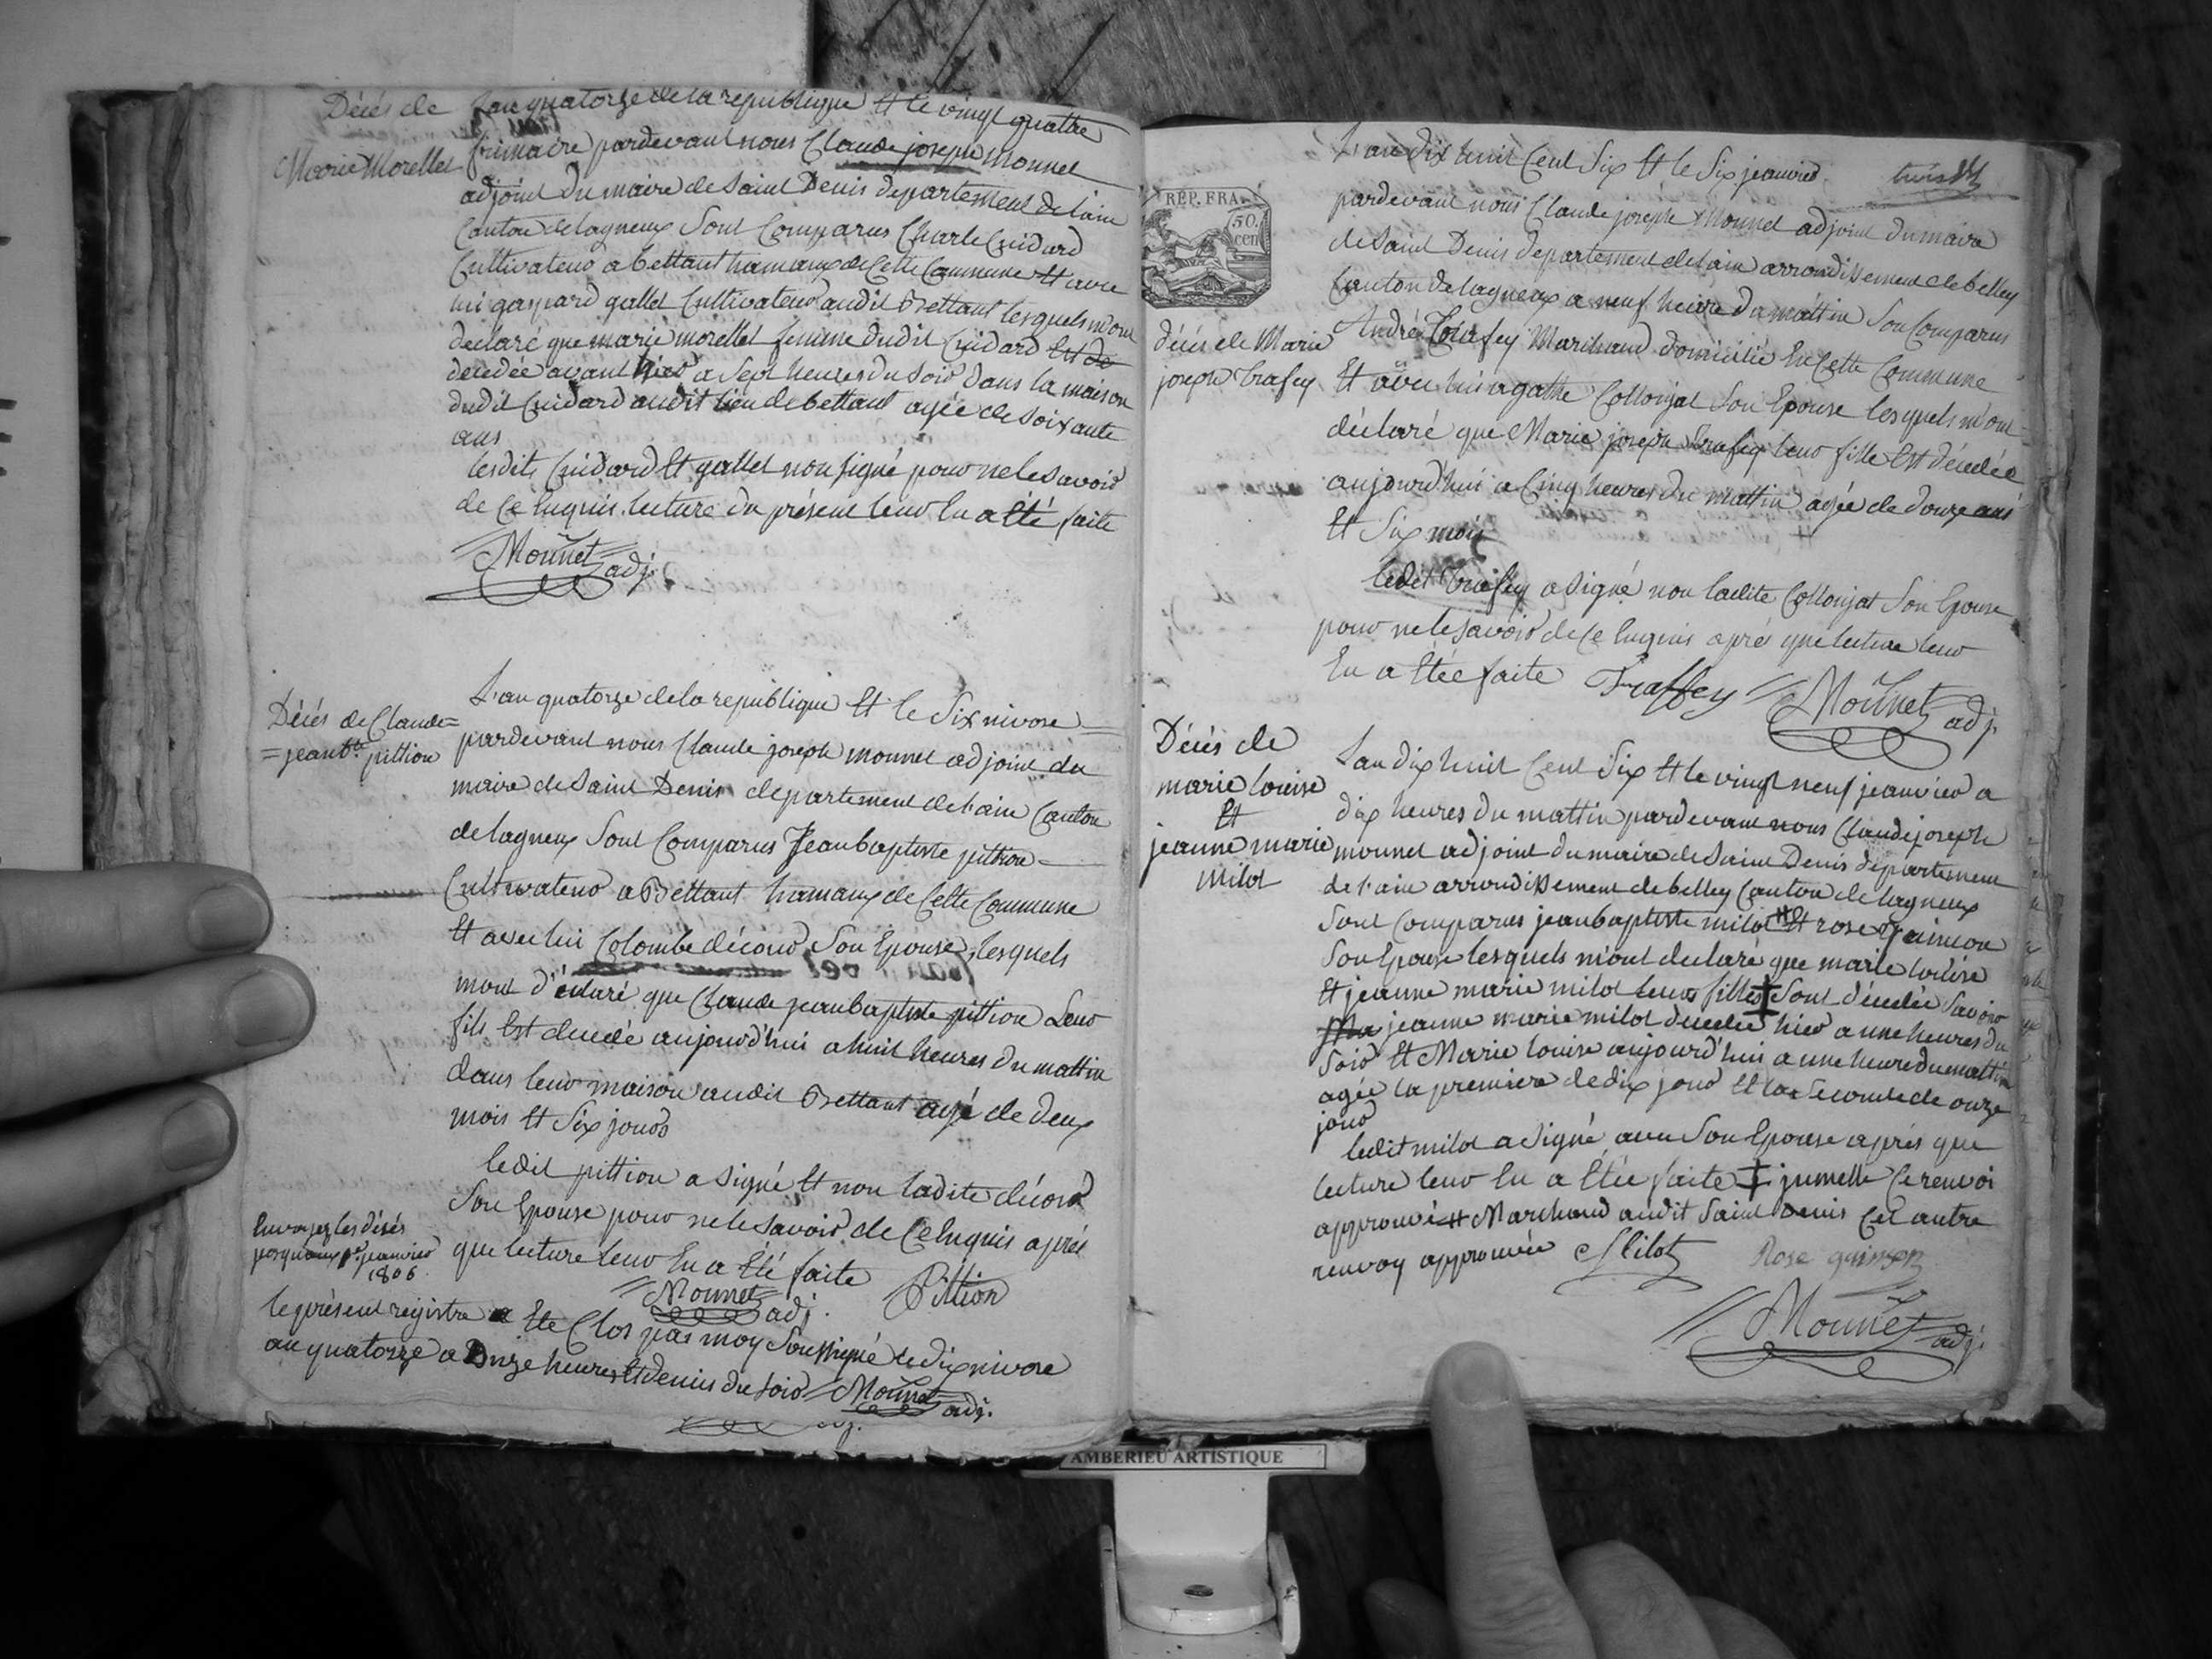 Décés de
Marie Morellet
L'an quatorze de la republique Et le vingt quatre
frimaire pardevant nous Claude joseph Monnet
adjoint du maire de Saint Denis departement de l'ain
Canton de lagneux Sont Comparus Charle Cuidard
Cultivateur a bettant hamaux de Cette Commune Et avec
lui gaspard gallet Cultivateur audit Bettant lesquels m'ont
declaré que marie morellet femme dudit Cuidard Est de
decedée avant hier a Sept heures du Soir dans la maison
dudit Cuidard audit lieu de bettant agée de Soixante
ans
lesdits Cuidard Et gallet non signé pour ne le Savoir
de Ce Enquis lecture du présent leur En a Eté faite
Monnet adj.
Décés de Claude=
=jean bte pittion
L'an quatorze de la republique Et le Six nivose
pardevant nous Claude joseph monnet adjoint du
maire de Saint Denis département de l'ain Canton
de lagneux Sont Comparus Jean baptiste pittion
Cultivateur a Bettant hamaux de Cette Commune
Et avec lui Colombe décour Son Epouse, lesquels
mont d'éclaré que Claude jean baptiste pittion Leur
fils Est decedé aujourd'hui a huit heures du mattin
dans leur maison audit Bettant agé de deux
mois Et Six jours
ledit pittion a signé Et non ladite décour
Son Epouse pour ne le Savoir de Ce Enquis aprés
que lecture leur En a Eté faite
Monnet adj. Pittion
Envoyez les désés
jusquaux 1er janvier
1806
le présent registre a Ete Clos par moy Soussigné le dix nivose
an quatorze a Onze heures Et demis du Soir Monnet adj.
adj.
REP. FRA.
50.
cen
L'an dix huit Cent Six Et le Six jeanvier
pardevant nous Claude joseph Monnet adjoint du maire
de Saint Denis departement de l'ain arrondissement de belley
Canton de lagneux a neuf heure du mattin Son Comparus
décés de Marie
joseph trafey
André Trafey Marchand domicilié En Cette Commune
Et avec lui agathe Collonjat Son Epouse lesquels m'ont
déclaré que Marie joseph trafey leur fille Est décedée
aujourd'hui a Cinq heures du mattin agée de douze ans
Et Six mois
ledit trafey a signé non ladite Collonjat Son Epouse
pour ne le Savoir de Ce Enquis aprés que lecture leur
En a Etée faite Traffey Monnet adj.
Décés de
marie louise
Et
jeanne marie
milot
L'an dix huit Cent Six Et le vingt neuf jeanvier a
dix heures du mattin pardevant nous Claude joseph
monnet adjoint du maire de Saint Denis departement
de l'ain arrondissement de belley Canton de lagneux
Sont Comparus jean baptiste milot # Et rose guinson
Son Epouse lesquels m'ont declaré que marie louise
Et jeanne marie milot leurs filles ‡ Sont décedée Savoir
Ma jeanne marie milot decedée hier a une heures du
Soir Et Marie louise aujourd'hui a une heure du mattin
agée la premiere de dix jour Et la Seconde de onze
jour
ledit milot a Signé avec Son Epouse aprés que
lecture leur En a Etée faite ‡ jumelle Ce renvoi
approuvé # Marchand audit Saint Denis Cet autre
renvoy approuvée Milot Rose guinson
Monnet adj.
AMBERIEU ARTISTIQUE